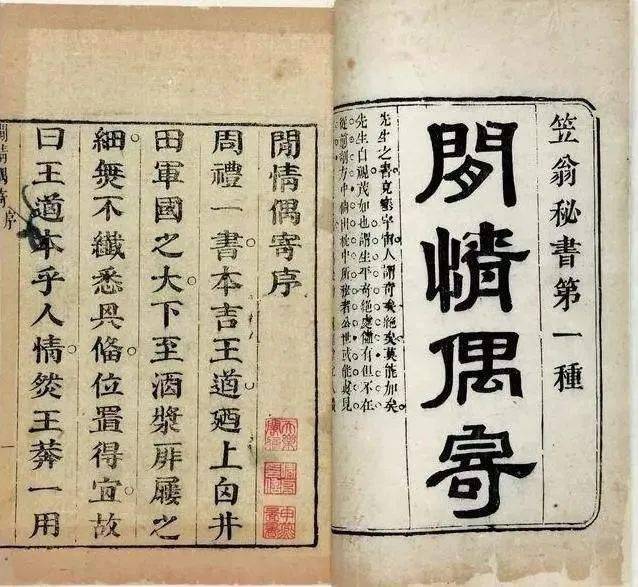 笠翁秘書第一種
閒情偶寄
先生之書充塞宇宙人謂奇矣絕矣莫能加矣
先生自視蔑如也謂生平奇絕處儘有但不在
從前剞劂中倘出枕中所秘者公世或能見
閒情偶寄序
周禮一書本言王道廼上自井
田軍國之大下至酒漿屝屨之
細無不纖悉具備位置得宜故
曰王道本乎人情然王莽一用
閒情偶寄 序